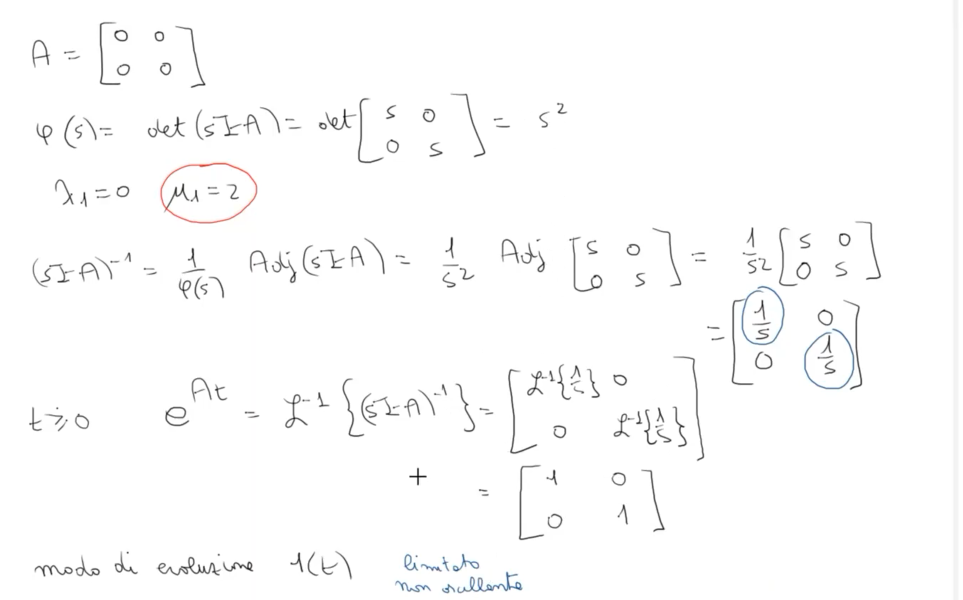 A = [0 0
0 0]
φ(s) = det(sI-A) = det [s 0
0 s] = s²
λ1=0 μ1=2
(sI-A)⁻¹ = 1/φ(s) Adj(sI-A) = 1/s² Adj [s 0
0 s] = 1/s² [s 0
0 s]
= [1/s 0
0 1/s]
t≥0 e^At = ℒ⁻¹{(sI-A)⁻¹} = [ℒ⁻¹{1/s} 0
0 ℒ⁻¹{1/s}]
= [1 0
0 1]
modo di evoluzione 1(t) limitato
non nullente